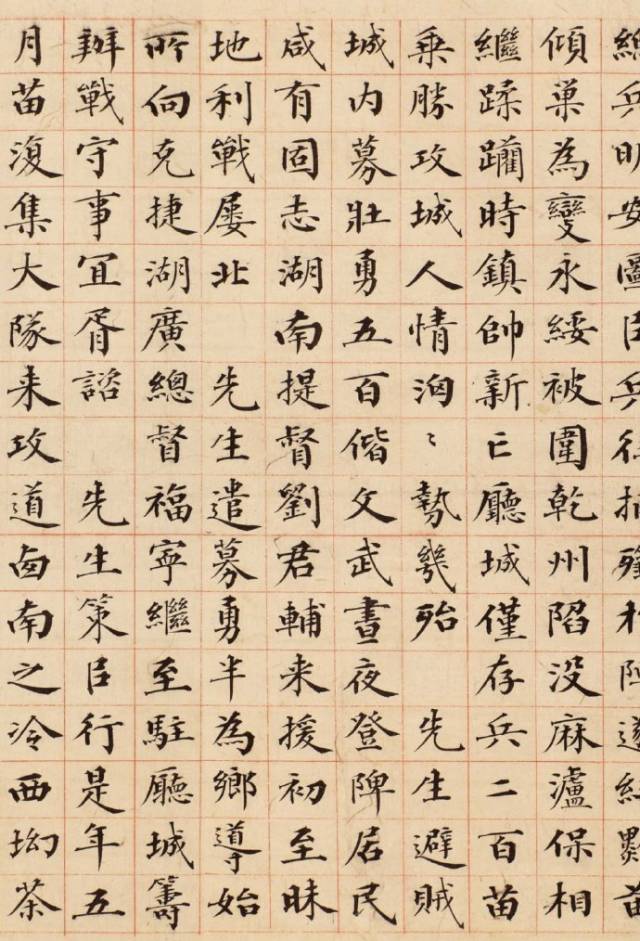 總兵明安圖
傾巢為變永綏被圍乾州陷没麻瀘保相
繼蹂躪時鎮帥新亡廳城僅存兵二百苗
乗勝攻城人情洶〻勢幾殆　先生避賊
城内募壯勇五百偕文武晝夜登陴居民
咸有固志湖南提督劉君輔来援初至昧
地利戰屡北　先生遣募勇半為鄉導始
所向克捷湖廣總督福寧繼至駐廳城籌
辦戰守事宜胥諮　先生策㠯行是年五
月苗復集大隊来攻道卥南之冷西坳茶